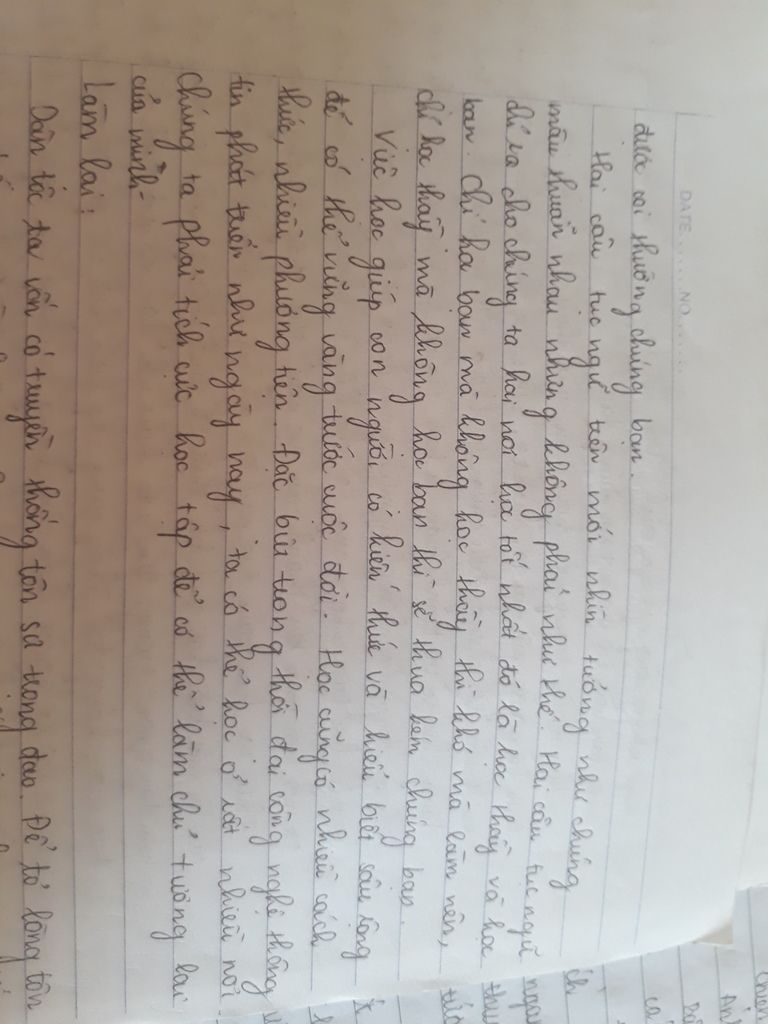 DATE...... NO.......
được coi thường chúng bạn.
Hai câu tục ngữ trên mới nhìn tưởng như chúng
mâu thuẫn nhau nhưng không phải như thế. Hai câu tục ngữ
chỉ ra cho chúng ta hai nơi học tốt nhất đó là học thầy và học
bạn. Chỉ học bạn mà không học thầy thì khó mà làm nên,
chỉ học thầy mà không học bạn thì sẽ thua kém chúng bạn.
Việc học giúp con người có kiến thức và hiểu biết sâu rộng
để có thể vững vàng trước cuộc đời. Học cũng có nhiều cách
thức, nhiều phương tiện. Đặc biệt trong thời đại công nghệ thông
tin phát triển như ngày nay, ta có thể học ở rất nhiều nơi.
Chúng ta phải tích cực học tập để có thể làm chủ tương lai
của mình.
Làm lại:
Dân tộc ta vốn có truyền thống tôn sư trọng đạo. Để tỏ lòng tôn